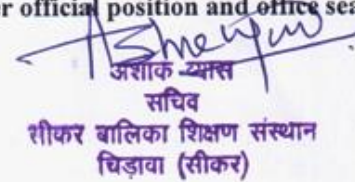 er official position and office sea
अशोक व्यास
सचिव
शीकर बालिका शिक्षण संस्थान
चिड़ावा (सीकर)